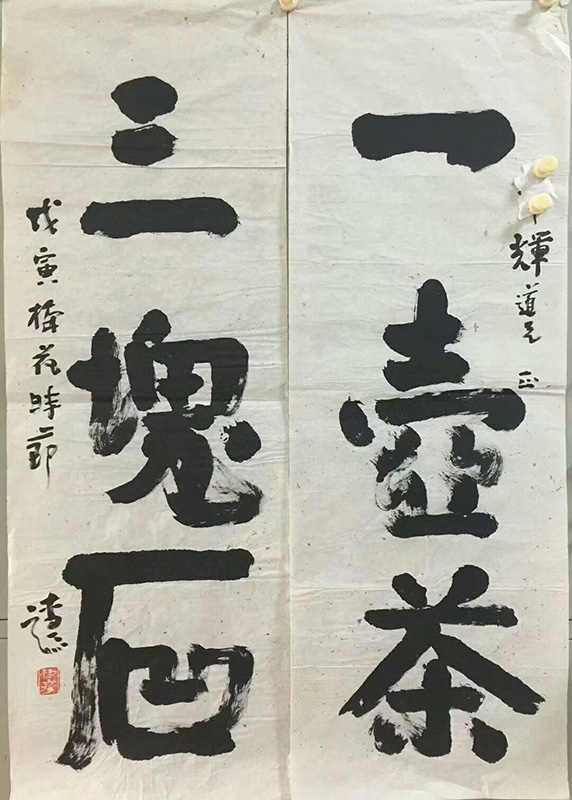 一壺茶
輝道兄 正
三塊石
戊寅梅花時節